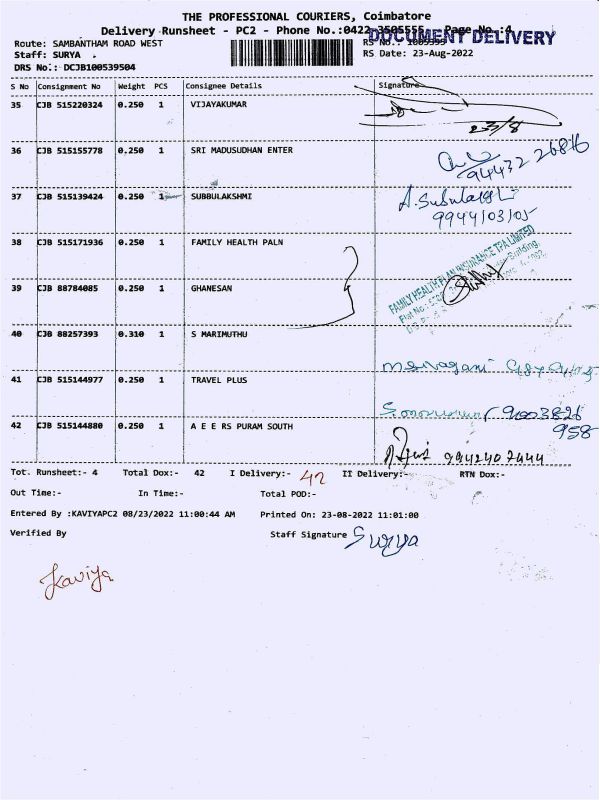 THE PROFESSIONAL COURIERS, Coimbatore
Delivery Runsheet - PC2 - Phone No.:0422-3505555 Page No.:4
DOCUMENT DELIVERY
Route: SAMBANTHAM ROAD WEST RS No.: 1009399
Staff: SURYA . RS Date: 23-Aug-2022
DRS No.: DCJB100539504
S No Consignment No Weight PCS Consignee Details Signature
35 CJB 515220324 0.250 1 VIJAYAKUMAR
23/8
36 CJB 515155778 0.250 1 SRI MADUSUDHAN ENTER
94432 26816
37 CJB 515139424 0.250 1 SUBBULAKSHMI A.Subulaxmi
9944103105
38 CJB 515171936 0.250 1 FAMILY HEALTH PALN
FAMILY HEALTH PLAN INSURANCE TPA LIMITED
39 CJB 88784085 0.250 1 GHANESAN
40 CJB 88257393 0.310 1 S MARIMUTHU
41 CJB 515144977 0.250 1 TRAVEL PLUS
9003826
958
42 CJB 515144880 0.250 1 A E E RS PURAM SOUTH
9942407444
Tot. Runsheet:- 4 Total Dox:- 42 I Delivery:- 42 II Delivery:- RTN Dox:-
Out Time:- In Time:- Total POD:-
Entered By :KAVIYAPC2 08/23/2022 11:00:44 AM Printed On: 23-08-2022 11:01:00
Verified By Staff Signature Surya
Kaviya